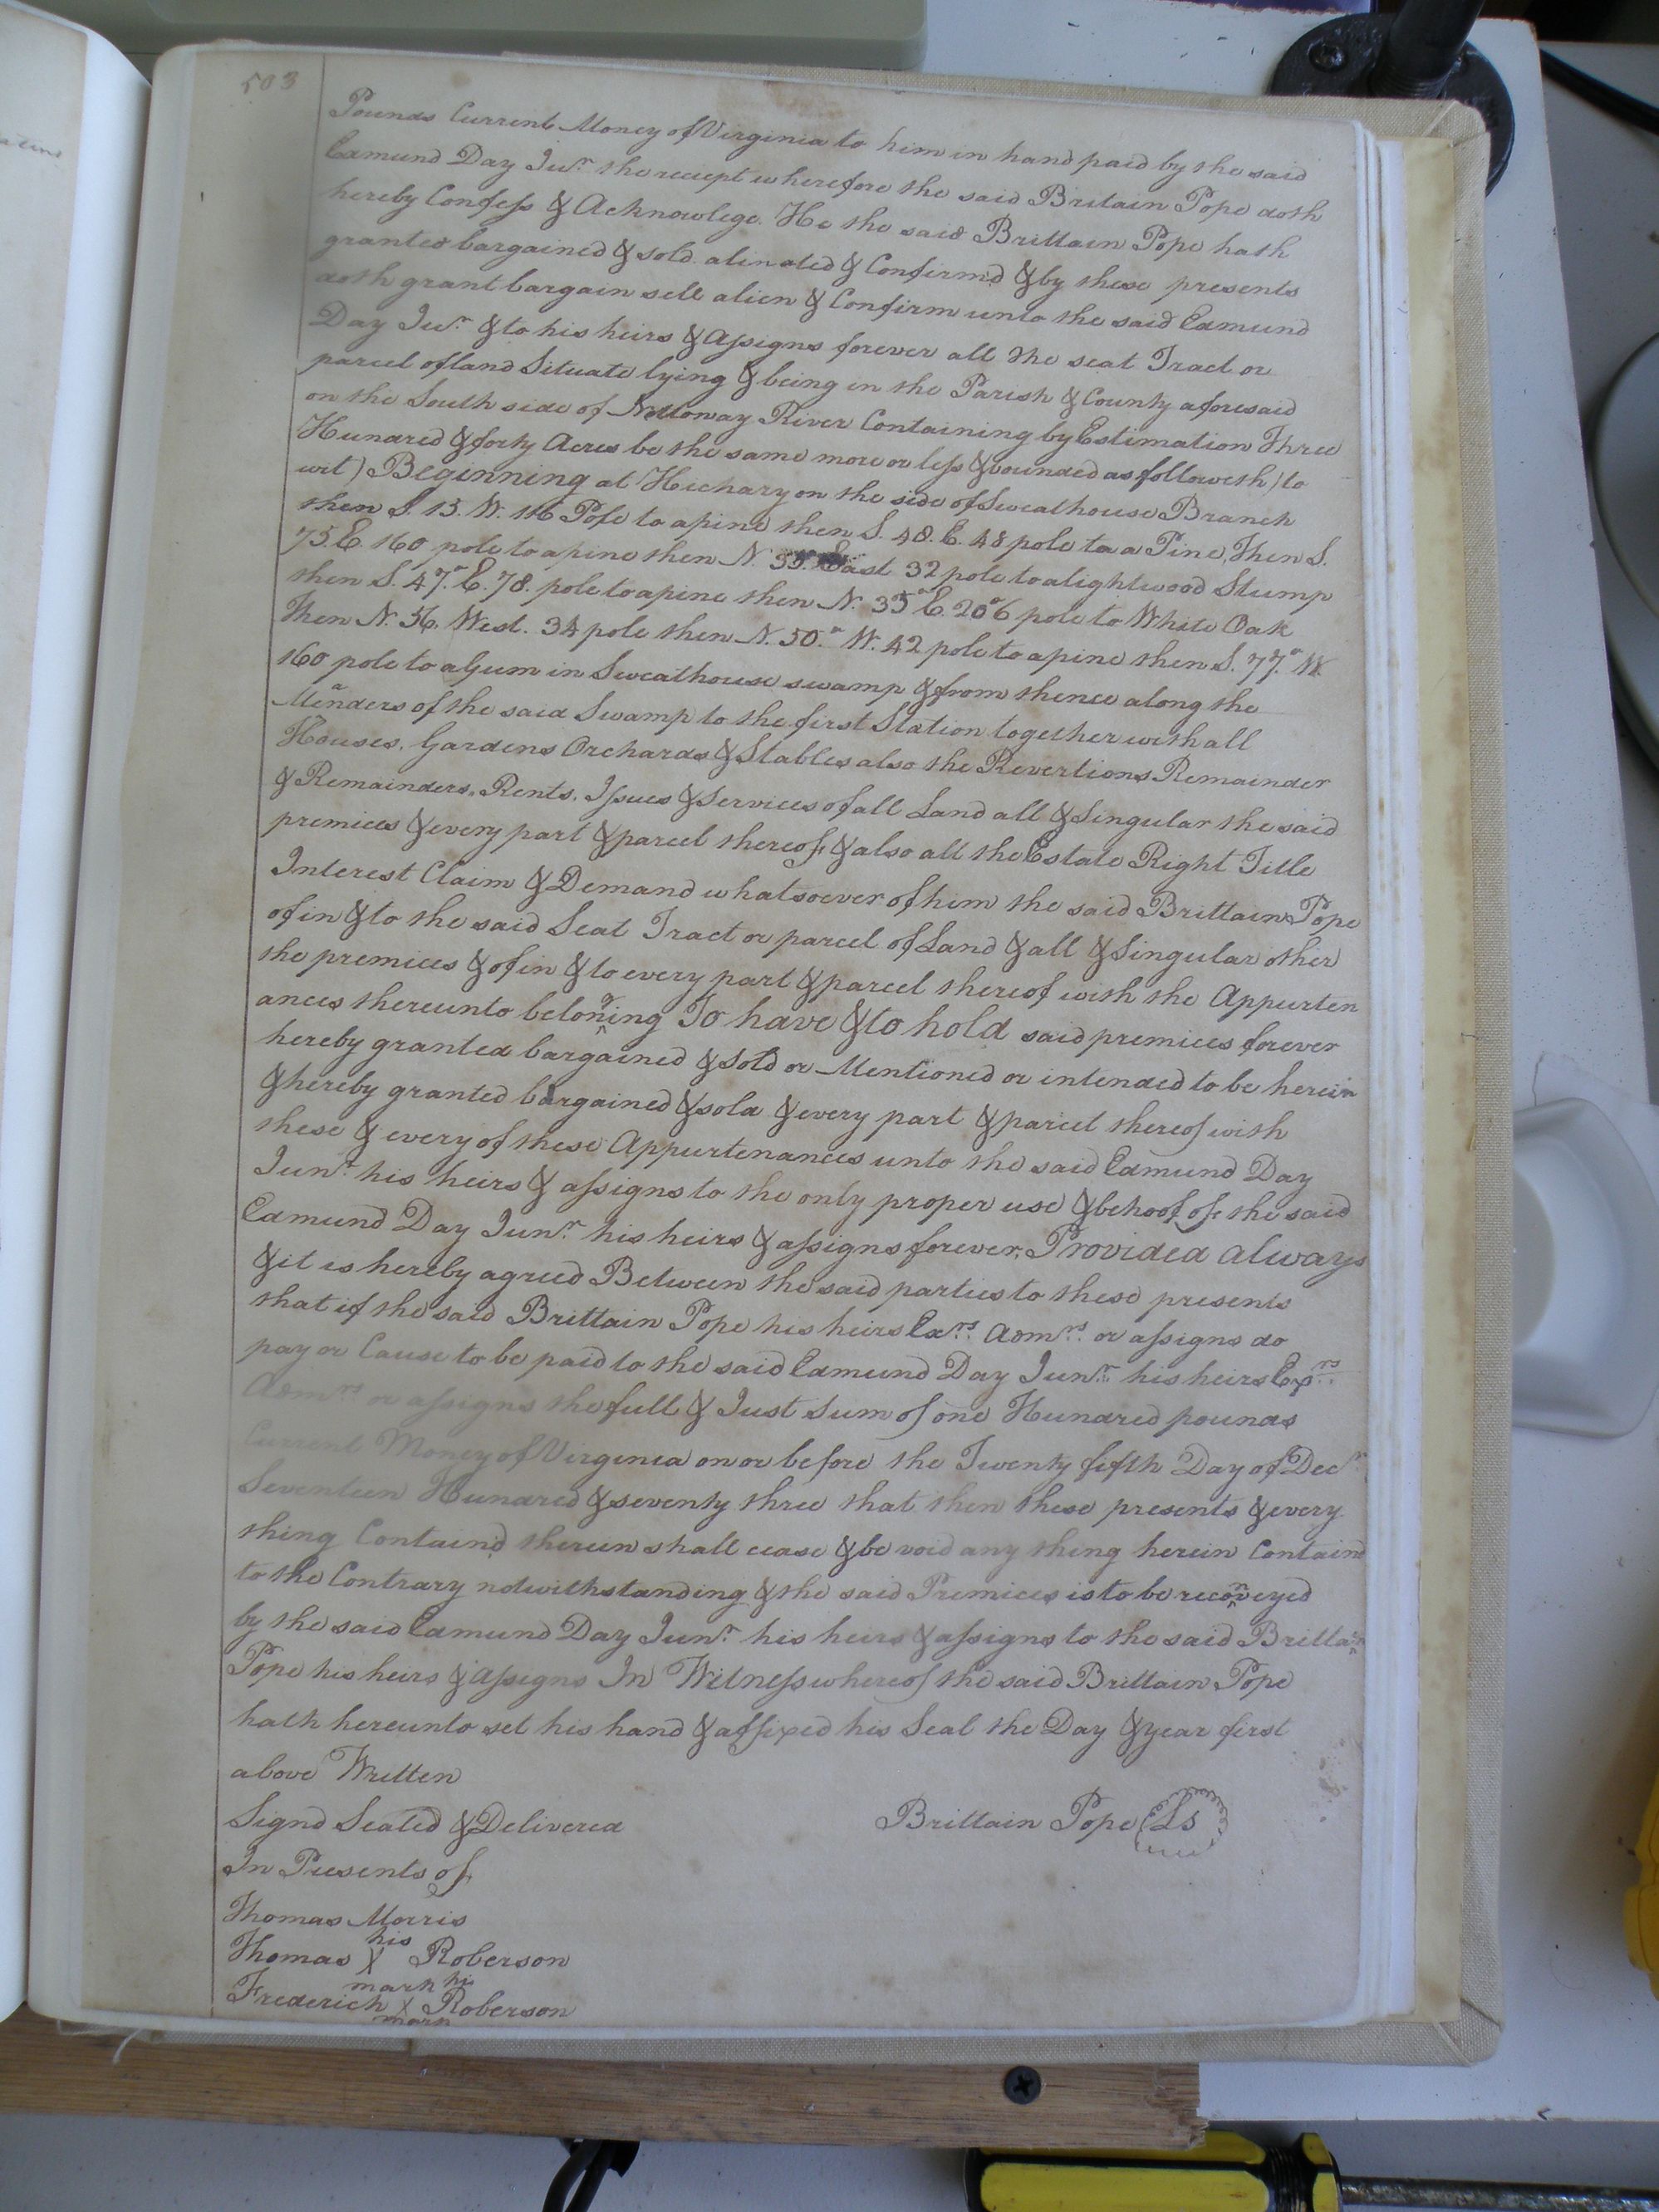 503
Pounds Current Money of Virginia to him in hand paid by the said
Edmund Day Junr. the receipt wherefore the said Britain Pope doth
hereby Confess & Acknowlege. He the said Brittain Pope hath
granted bargained & sold alinated & Confirmd & by these presents
doth grant bargain sell alien & Confirm unto the said Edmund
Day Junr. & to his heirs & Assigns forever all the seat Tract or
parcel of land Situate lying & being in the Parish & County aforesaid
on the South side of Nottoway River Containing by Estimation Three
Hundred & forty Acres be the same more or less & bounded as followeth) to
wit) Beginning at Hickary on the side of Sweathouse Branch
then S. 15. W. 116 Pole to a pine then S. 48. E. 48 pole to a Pine, Then S.
75. E. 160 pole to a pine then N. 35. East 32 pole to a lightwood Stump
then S. 47. E. 78. pole to a pine then N. 35 E. 206 pole to White Oak
Then N. 56. West. 34 pole then N. 50. W. 42 pole to a pine then S. 77. W.
160 pole to a Gum in Sweathouse swamp & from thence along the
Meanders of the said Swamp to the first Station together with all
Houses, Gardens Orchards & Stables also the Revertions Remainder
& Remainders, Rents, Issues & Services of all Land all & Singular the said
premices & every part & parcel thereof & also all the Estate Right Title
Interest Claim & Demand whatsoever of him the said Brittain Pope
of in & to the said Seat Tract or parcel of Land & all & Singular other
the premices & of in & to every part & parcel thereof with the Appurten
ances thereunto beloning To have & to hold said premices forever
hereby granted bargained & Sold or Mentioned or intended to be herein
& hereby granted bargained & sold & every part & parcel thereof with
these & every of these Appurtenances unto the said Edmund Day
Junr. his heirs & assigns to the only proper use & behoof of the said
Edmund Day Junr. his heirs & assigns forever, Provided always
& it is hereby agreed Between the said parties to these presents
that if the said Brittain Pope his heirs Exrs. Admrs. or assigns do
pay or Cause to be paid to the said Edmund Day Junr. his heirs Exrs.
Admrs or assigns the full & Just Sum of one Hundred pounds
Current Money of Virginia on or before the Twenty fifth Day of Decr.
Seventeen Hundred & seventy three that then these presents & every
thing Containd therein shall cease & be void any thing herein Containd
to the Contrary notwithstanding & the said Premices is to be reconveyed
by the said Edmund Day Junr. his heirs & assigns to the said Brittain
Pope his heirs & Assigns In Witness whereof the said Brittain Pope
hath hereunto set his hand & affixed his Seal the Day & year first
above Written
Signd Sealed & Delivered Brittain Pope Ls
In Presents of
Thomas Morris
his
Thomas X Roberson
mark his
Frederick X Roberson
mark